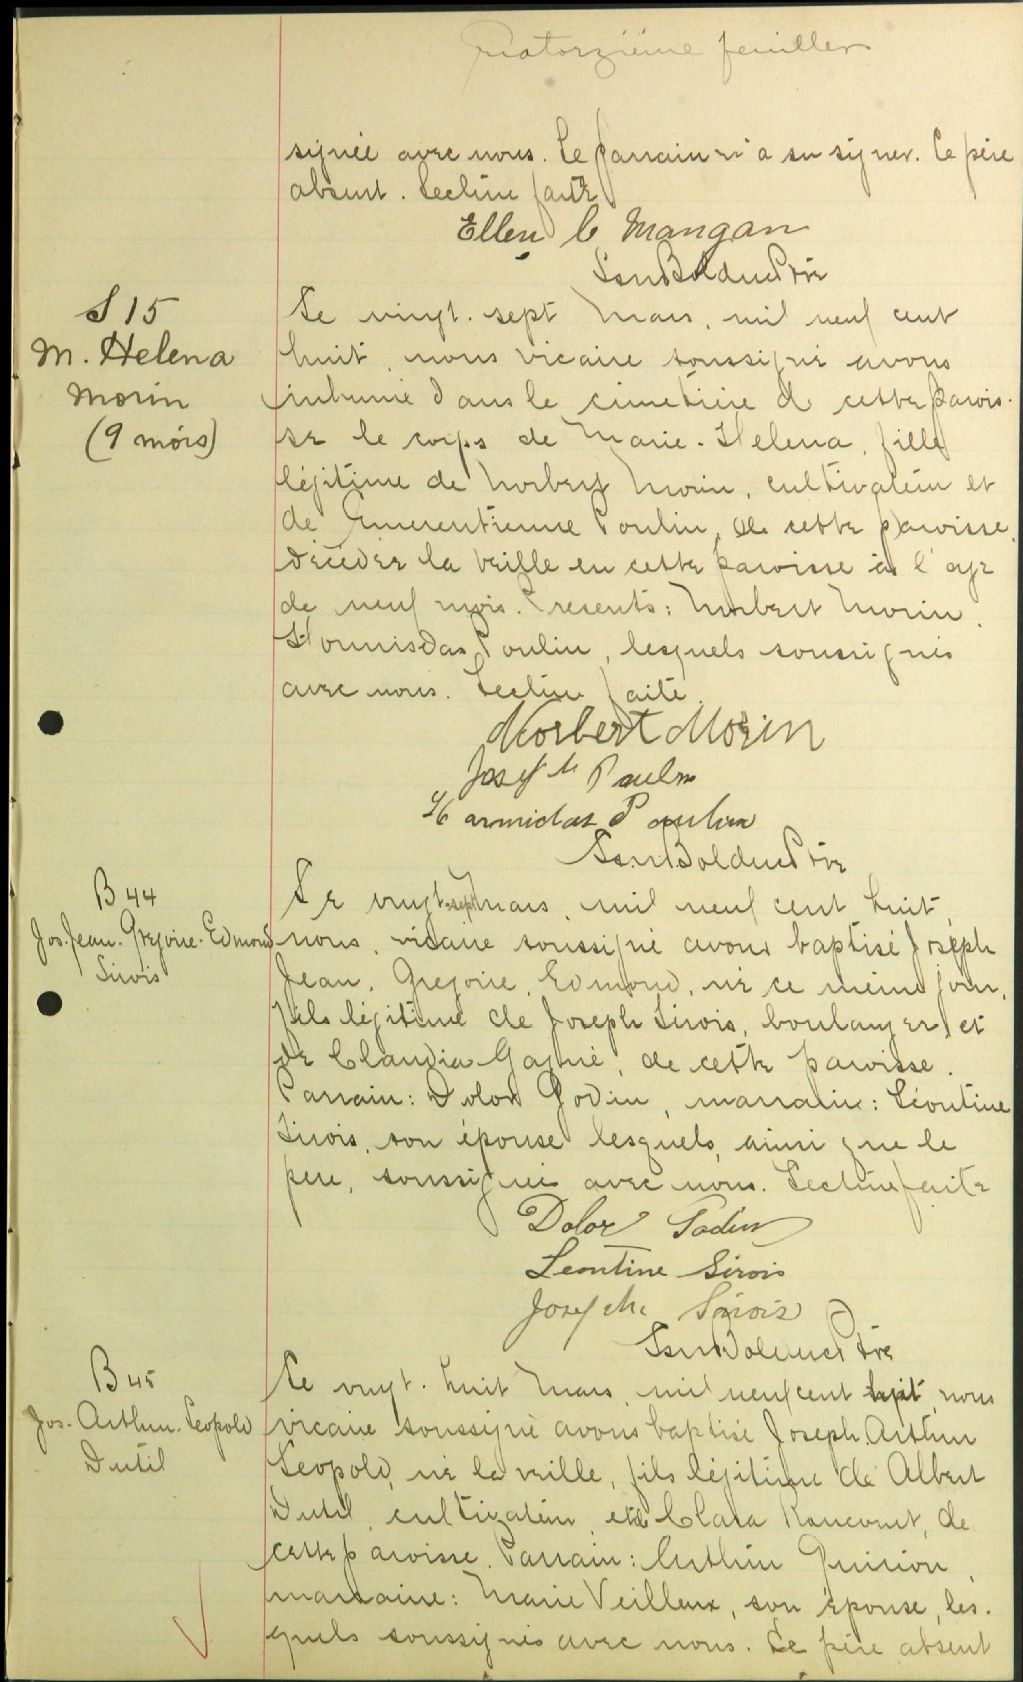 Quatorzième feuillet
signée avec nous. Le parrain n'a su signer. Le père
absent. Lecture faite
Ellen C Mangan
Bolduc Ptre
S 15
M. Helena
Morin
(9 mois)
Le vingt-sept Mars, mil neuf cent
huit, nous vicaire soussigné avons
inhumé dans le cimetière de cette parois-
se le corps de Marie-Helena, fille
légitime de Norbert Morin, cultivateur et
de Emerentienne Poulin, de cette paroisse,
décédée la veille en cette paroisse à l'age
de neuf mois. Presents: Norbert Morin,
Hormisdas Poulin, lesquels soussignés
avec nous. Lecture faite.
Norbert Morin
Joseph Poulin
Harmidas Poulin
Bolduc Ptre
B 44
Jos. Jean. Gregoire. Edmond
Sirois
Le vingt-sept Mars, mil neuf cent huit,
nous, vicaire soussigné avons baptisé Joseph
Jean, Gregoire, Edmond, né ce même jour,
fils légitime de Joseph Sirois, boulanger et
de Claudia Gagné, de cette paroisse.
Parrain: Dolor Godin, marraine: Léontine
Sirois, son épouse lesquels, ainsi que le
père, soussignés avec nous. Lecture faite
Dolor Godin
Leontine Sirois
Joseph Sirois
Bolduc Ptre
B 45
Jos. Arthur. Leopold
Dutil
Le vingt-huit Mars mil neuf cent huit, nous
vicaire soussigné avons baptisé Joseph Arthur
Leopold, né la veille, fils légitime de Albert
Dutil, cultivateur et de Clara Rancourt, de
cette paroisse. Parrain: Arthur Quirion,
marraine: Marie Veilleux, son épouse, les-
quels soussignés avec nous. Le père absent